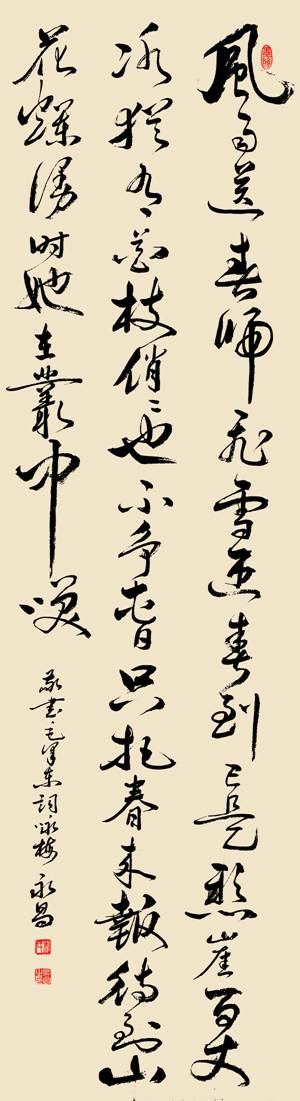 風雨送春歸飛雪迎春到已是懸崖百丈
冰猶有花枝俏俏也不爭春只把春來報待到山
花爛漫時她在叢中笑
敬書毛澤東詞咏梅 永昌